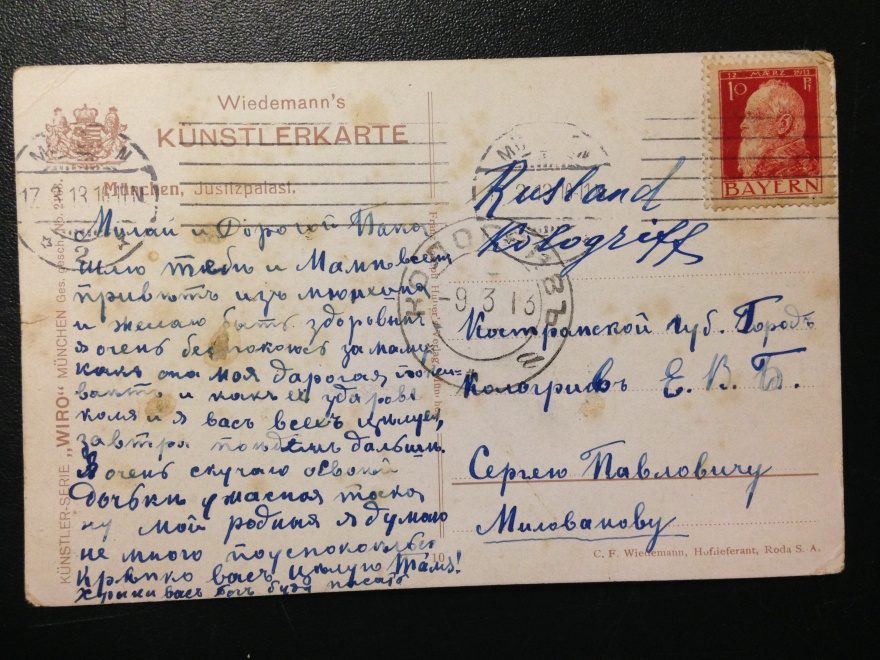 Wiedemann's
KÜNSTLERKARTE
München, Justizpalast.
12 MÄRZ 1911
10 Pf
BAYERN
MÜNCHEN
2
КОЛОГРИВЪ
-9 3 13
Милай и Дорогой Папа
шлю тебѣ и Мамѣ
привѣтъ изъ Мюнхена
и желаю быть здоровым
я очень беспокоюсь за маму
какъ она моя дарогая пожи-
ваитъ и какъ её здаровѣ
цѣлую,
завтра поѣдемъ дальши.
Я очень скучаю
Дочьки ужасная тоска
ну мой родныя я думаю
не много поуспокоилась
Крѣпко васъ цѣлую Таля!
Храни васъ богъ буду писать
Rusland
Kologriff
Костромской губ. Городъ
Кологривъ Е. В. Б.
Сергею Павловичу
Миловановy
KÜNSTLER-SERIE „WIRO" MÜNCHEN Ges. gesch. No.
10
C. F. Wiedemann, Hoflieferant, Roda S. A.